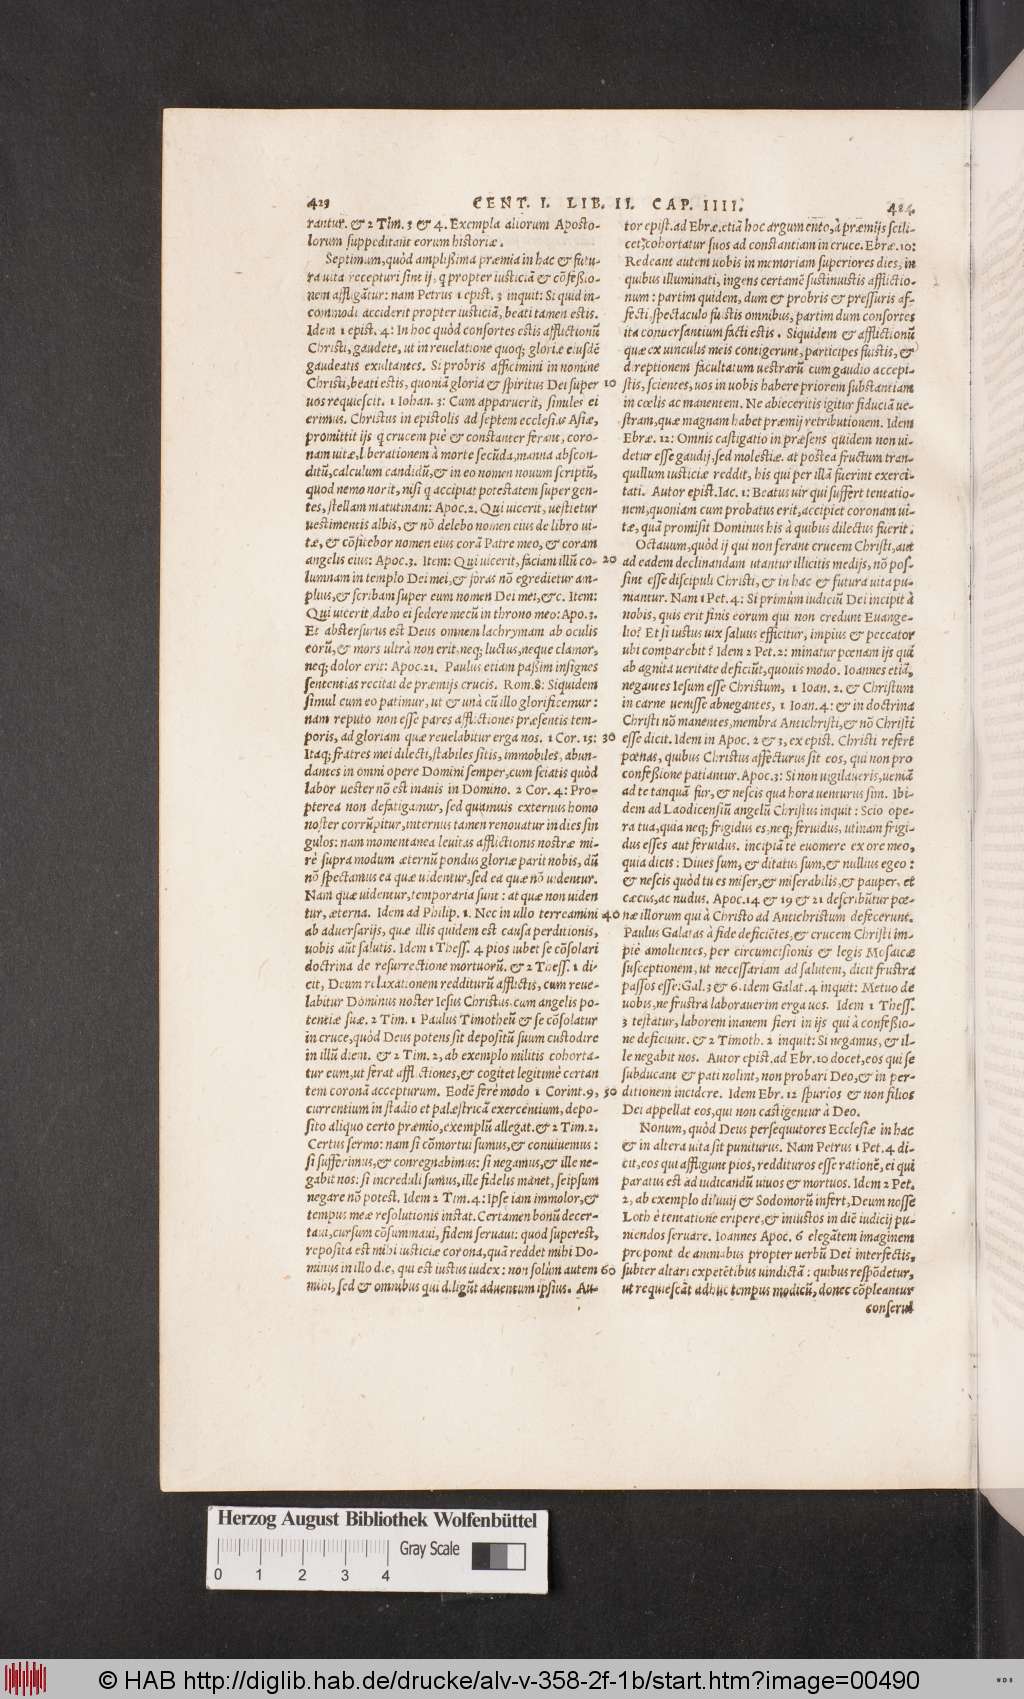 423 CENT. I. LIB. II. CAP. IIII. 424
rantur. & 2 Tim. 3 & 4. Exempla aliorum Aposto-
lorum suppeditant eorum historiæ.
Septimum, quòd amplißima præmia in hac & futu-
ra uita recepturi sint ij, q propter iusticiã & cõfeßio-
nem affligãtur: nam Petrus 1 epist. 3 inquit: Si quid in-
commodi acciderit propter iusticiã, beati tamen estis.
Idem 1 epist. 4: In hoc quòd consortes estis afflictionũ
Christi, gaudete, ut in reuelatione quoq; gloriæ eiusdẽ
gaudeatis exultantes. Si probris afficimini in nomine
Christi, beati estis, quoniã gloria & spiritus Dei super
uos requiescit. 1 Iohan. 3: Cum apparuerit, similes ei
erimus. Christus in epistolis ad septem ecclesias Asiæ,
promittit ijs q crucem piè & constanter ferant, coro-
nam uitæ, liberationem à morte secũda, manna abscon-
ditũ, calculum candidũ, & in eo nomen nouum scriptũ,
quod nemo norit, nisi q accipiat potestatem super gen-
tes, stellam matutinam: Apoc. 2. Qui uicerit, uestietur
uestimentis albis, & nõ delebo nomen eius de libro ui-
tæ, & cõfitebor nomen eius corã Patre meo, & coram
angelis eius: Apoc. 3. Item: Qui uicerit, faciam illũ co-
lumnam in templo Dei mei, & foras nõ egredietur am-
plius, & scribam super eum nomen Dei mei, &c. Item:
Qui uicerit, dabo ei sedere mecũ in throno meo: Apo. 3.
Et abstersurus est Deus omnem lachrymam ab oculis
eorũ, & mors ultrà non erit, neq; luctus, neque clamor,
neq; dolor erit: Apoc. 21. Paulus etiam paßim insignes
sententias recitat de præmijs crucis. Rom. 8: Siquidem
simul cum eo patimur, ut & unà cũ illo glorificemur:
nam reputo non esse pares afflictiones præsentis tem-
poris, ad gloriam quæ reuelabitur erga nos. 1 Cor. 15:
Itaq; fratres mei dilecti, stabiles sitis, immobiles, abun-
dantes in omni opere Domini semper, cum sciatis quòd
labor uester nõ est inanis in Domino. 2 Cor. 4: Pro-
pterea non defatigamur, sed quamuis externus homo
noster corrũpitur, internus tamen renouatur in dies sin
gulos: nam momentanea leuitas afflictionis nostræ mi-
rè supra modum æternũ pondus gloriæ parit nobis, dũ
nõ spectamus ea quæ uidentur, sed ea quæ nõ uidentur.
Nam quæ uidentur, temporaria sunt: at quæ non uiden
tur, æterna. Idem ad Philip. 1. Nec in ullo terreamini
ab aduersarijs, quæ illis quidem est causa perditionis,
uobis aũt salutis. Idem 1 Thess. 4 pios iubet se cõsolari
doctrina de resurrectione mortuorũ. & 2 Thess. 1 di-
cit, Deum relaxationem redditurũ afflictis, cum reue-
labitur Dominus noster Iesus Christus cum angelis po-
tentiæ suæ. 2 Tim. 1 Paulus Timotheũ & se cõsolatur
in cruce, quòd Deus potens sit depositũ suum custodire
in illũ diem. & 2 Tim. 2, ab exemplo militis cohorta-
tur eum, ut ferat afflictiones, & cogitet legitimè certan
tem coronã accepturum. Eodẽ ferè modo 1 Corint. 9,
currentium in stadio et palæstricã exercentium, depo-
sito aliquo certo præmio, exemplũ allegat. & 2 Tim. 2.
Certus sermo: nam si cõmortui sumus, & conuiuemus:
si sufferimus, & conregnabimus: si negamus, & ille ne-
gabit nos: si increduli sumus, ille fidelis manet, seipsum
negare nõ potest. Idem 2 Tim. 4: Ipse iam immolor, &
tempus meæ resolutionis instat. Certamen bonũ decer-
taui, cursum cõsummaui, fidem seruaui: quod superest,
reposita est mihi iusticiæ corona, quã reddet mihi Do-
minus in illo die, qui est iustus iudex: non solùm autem
mihi, sed & omnibus qui diligũt aduentum ipsius. Au-
10
20
30
40
50
60
tor epist. ad Ebræ. etiã hoc argumento, à præmijs scili-
cet, cohortatur suos ad constantiam in cruce. Ebræ. 10:
Redeant autem uobis in memoriam superiores dies, in
quibus illuminati, ingens certamẽ sustinuistis afflictio-
num: partim quidem, dum & probris & pressuris af-
fecti, spectaculo fuistis omnibus, partim dum consortes
ita conuersantium facti estis. Siquidem & afflictionũ
quæ ex uinculis meis contigerunt, participes fuistis, &
direptionem facultatum uestrarũ cum gaudio accepi-
stis, scientes, uos in uobis habere priorem substantiam
in cœlis ac manentem. Ne abieceritis igitur fiduciã ue-
stram, quæ magnam habet præmij retributionem. Idem
Ebræ. 12: Omnis castigatio in præsens quidem non ui-
detur esse gaudij, sed molestiæ. at postea fructum tran-
quillum iusticiæ reddit, his qui per illã fuerint exerci-
tati. Autor epist. Iac. 1: Beatus uir qui suffert tentatio-
nem, quoniam cum probatus erit, accipiet coronam ui-
tæ, quã promisit Dominus his à quibus dilectus fuerit.
Octauum, quòd ij qui non ferant crucem Christi, aut
ad eadem declinandam utantur illicitis medijs, nõ pos-
sint esse discipuli Christi, & in hac & futura uita pu-
niantur. Nam 1 Pet. 4: Si primùm iudiciũ Dei incipit à
nobis, quis erit finis eorum qui non credunt Euange-
lio? Et si iustus uix saluus efficitur, impius & peccator
ubi comparebit? Idem 2 Pet. 2: minatur pœnam ijs qui
ab agnita ueritate deficiũt, quouis modo. Ioannes etiã,
negantes Iesum esse Christum, 1 Ioan. 2. & Christum
in carne uenisse abnegantes, 1 Ioan. 4: & in doctrina
Christi nõ manentes, membra Antichristi, & nõ Christi
esse dicit. Idem in Apoc. 2 & 3, ex epist. Christi refert
pœnas, quibus Christus affecturus sit eos, qui non pro
confeßione patiantur. Apoc. 3: Si non uigilaueris, ueniã
ad te tanquã fur, & nescis qua hora uenturus sim. Ibi-
dem ad Laodicensiũ angelũ Christus inquit: Scio ope-
ra tua, quia neq; frigidus es, neq; feruidus, utinam frigi-
dus esses aut feruidus. incipiã te euomere ex ore meo,
quia dicis: Diues sum, & ditatus sum, & nullius egeo:
& nescis quòd tu es miser, & miserabilis, & pauper, et
cæcus, ac nudus. Apoc. 14 & 19 & 21 describũtur pœ-
næ illorum qui à Christo ad Antichristum defecerunt.
Paulus Galatas à fide deficiẽtes, & crucem Christi im-
piè amolientes, per circumcisionis & legis Mosaicæ
susceptionem, ut necessariam ad salutem, dicit frustra
passos esse: Gal. 3 & 6. idem Galat. 4 inquit: Metuo de
uobis, ne frustra laborauerim erga uos. Idem 1 Thess.
3 testatur, laborem inanem fieri in ijs qui à confeßio-
ne deficiunt. & 2 Timoth. 2 inquit: Si negamus, & il-
le negabit nos. Autor epist. ad Ebr. 10 docet, eos qui se
subducant & pati nolint, non probari Deo, & in per-
ditionem incidere. Idem Ebr. 12 spurios & non filios
Dei appellat eos, qui non castigentur à Deo.
Nonum, quòd Deus persequutores Ecclesiæ in hac
& in altera uita sit puniturus. Nam Petrus 1 Pet. 4 di-
cit, eos qui affligunt pios, reddituros esse rationẽ, ei qui
paratus est ad iudicandũ uiuos & mortuos. Idem 2 Pet.
2, ab exemplo diluuij & Sodomorũ infert, Deum nosse
Loth è tentatione eripere, & iniustos in diẽ iudicij pu-
niendos seruare. Ioannes Apoc. 6 elegãtem imaginem
proponit de animabus propter uerbũ Dei interfectis,
subter altari expetẽtibus uindictã: quibus respõdetur,
ut requiescãt adhuc tempus modicũ, donec cõpleantur
conserui
Herzog August Bibliothek Wolfenbüttel
Gray Scale
0 1 2 3 4
© HAB http://diglib.hab.de/drucke/alv-v-358-2f-1b/start.htm?image=00490